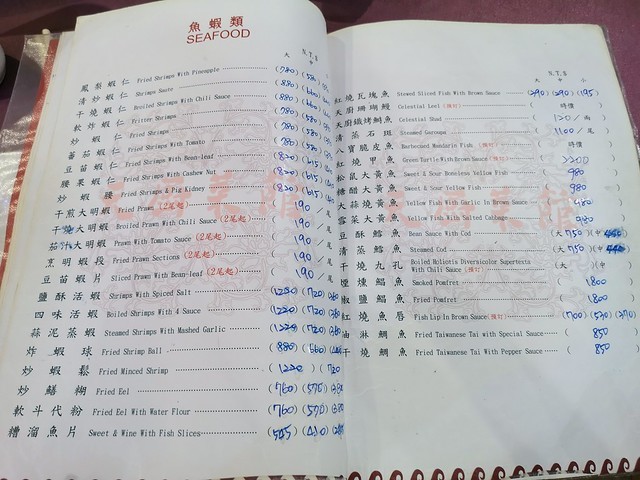 魚蝦類
SEAFOOD
N.T.$
大 中
鳳梨蝦仁 Fried Shrimps With Pineapple (780)(580)
清炒蝦仁 Fried Shrimps Saute (880)(660)
干燒蝦仁 Broiled Shrimps With Chili Sauce (880)(660)
軟炸蝦仁 Fritter Shrimps (780)(580)
炒蝦仁 Fried Shrimps (780)(580)
蕃茄蝦仁 Fried Shrimps With Tomato (780)(580)
豆苗蝦仁 Fried Shrimps With Bean-leaf (820)(615)
腰果蝦仁 Fried Shrimps With Cashew Nut (820)(615)
炒蝦腰 Fried Shrimps & Pig Kidney (820)(615)
干煎大明蝦 Fried Prawn (2尾起) 190/尾
干燒大明蝦 Broiled Prawn With Chili Sauce (2尾起) 190/尾
茄汁大明蝦 Prawn With Tomato Sauce (2尾起) 190/尾
烹明蝦段 Fried Prawn Sections (2尾起) 190/尾
豆苗蝦片 Sliced Prawn With Bean-leaf (2尾起) 190/尾
鹽酥活蝦 Shrimps With Spiced Salt (1220)(720)(360)
四味活蝦 Boiled Shrimps With 4 Sauce (1220)(720)(360)
蒜泥蒸蝦 Steamed Shrimps With Mashed Garlic (1220)(720)(360)
炸蝦球 Fried Shrimp Ball (880)(660)
炒蝦鬆 Fried Minced Shrimp (1220)(720
炒鱔糊 Fried Eel (760)(570)(380)
軟斗代粉 Fried Eel With Water Flour (760)(570)(380)
糟溜魚片 Sweet & Wine With Fish Slices (545)(410)
N.T.$
大 中 小
紅燒瓦塊魚 Stewed Sliced Fish With Brown Sauce (390)(290)(195)
天廚珊瑚鰻 Celestial Leel (預訂) ( 時價
天廚鐵烤鰣魚 Celestial Shad ( 120/兩
清蒸石斑 Steamed Garoupa ( 1100/尾
八寶脆皮魚 Barbecued Mandarin Fish (預訂) ( 時價
紅燒甲魚 Green Turtle With Brown Sauce (預訂) (
松鼠大黃魚 Sweet & Sour Boneless Yellow Fish ( 980
糖醋大黃魚 Sweet & Sour Yellow Fish ( 980
大蒜燒黃魚 Yellow Fish With Garlic In Brown Sauce ( 980
雪菜大黃魚 Yellow Fish With Salted Cabbage ( 980
豆酥鱈魚 Bean Sauce With Cod (大 750)(中 450)
清蒸鱈魚 Steamed Cod (大 750)(中 440)
干燒九孔 Boiled Haliotis Diversicolor Supertexta With Chili Sauce (預訂) (大 )(中
煙燻鯧魚 Smoked Pomfret ( 1800
椒鹽鯧魚 Fried Pomfret ( 1800
紅燒魚唇 Fish Lip In Brown Sauce (預訂) (700)(530)(370)
油淋鯛魚 Fried Taiwanese Tai with Special Sauce ( 850
干燒鯛魚 Fried Taiwanese Tai With Pepper Sauce ( 850